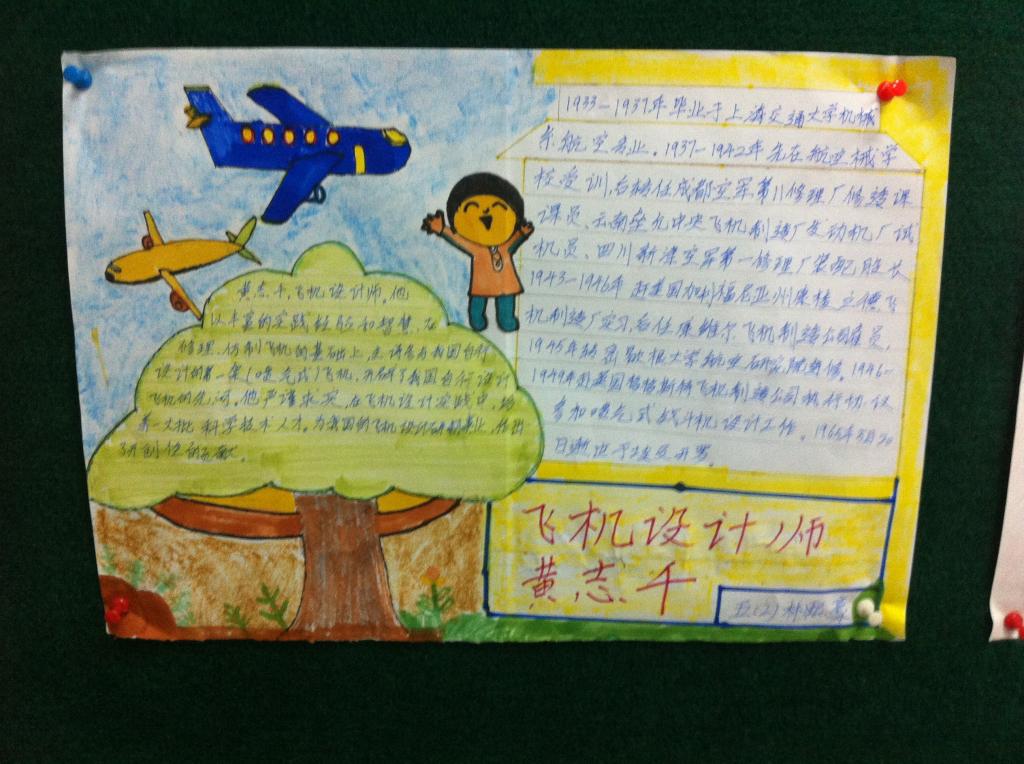 黄志千,飞机设计师。他
以丰富的实践经验和智慧,在
修理、仿制飞机的基础上,主
设计的第一架(喷气式)飞机,开辟了我国自行设计
飞机的先河。他严谨求实,在飞机设计实践中,培
养一大批科学技术人才。为我国的飞机设计研制事业,作出
了开创性的贡献。
1933—1937年毕业于上海交通大学机械
系航空专业。1937—1942年先在航空机械学
校受训,后转任成都空军第八修理厂修造课
课员、云南垒允中央飞机制造厂发动机厂试
机员、四川新津空军第一修理厂装配股长
1943—1946年赴美国加利福尼亚州康维立德飞
机制造厂实习,后任康维尔飞机制造公司雇员,
1945年转密歇根大学航空研究院进修。1946—
1949年赴英国格格斯特飞机制造公司
参加喷气式战斗机设计工作。1965年5月20
日
飞机设计师
黄志千
五(2)林